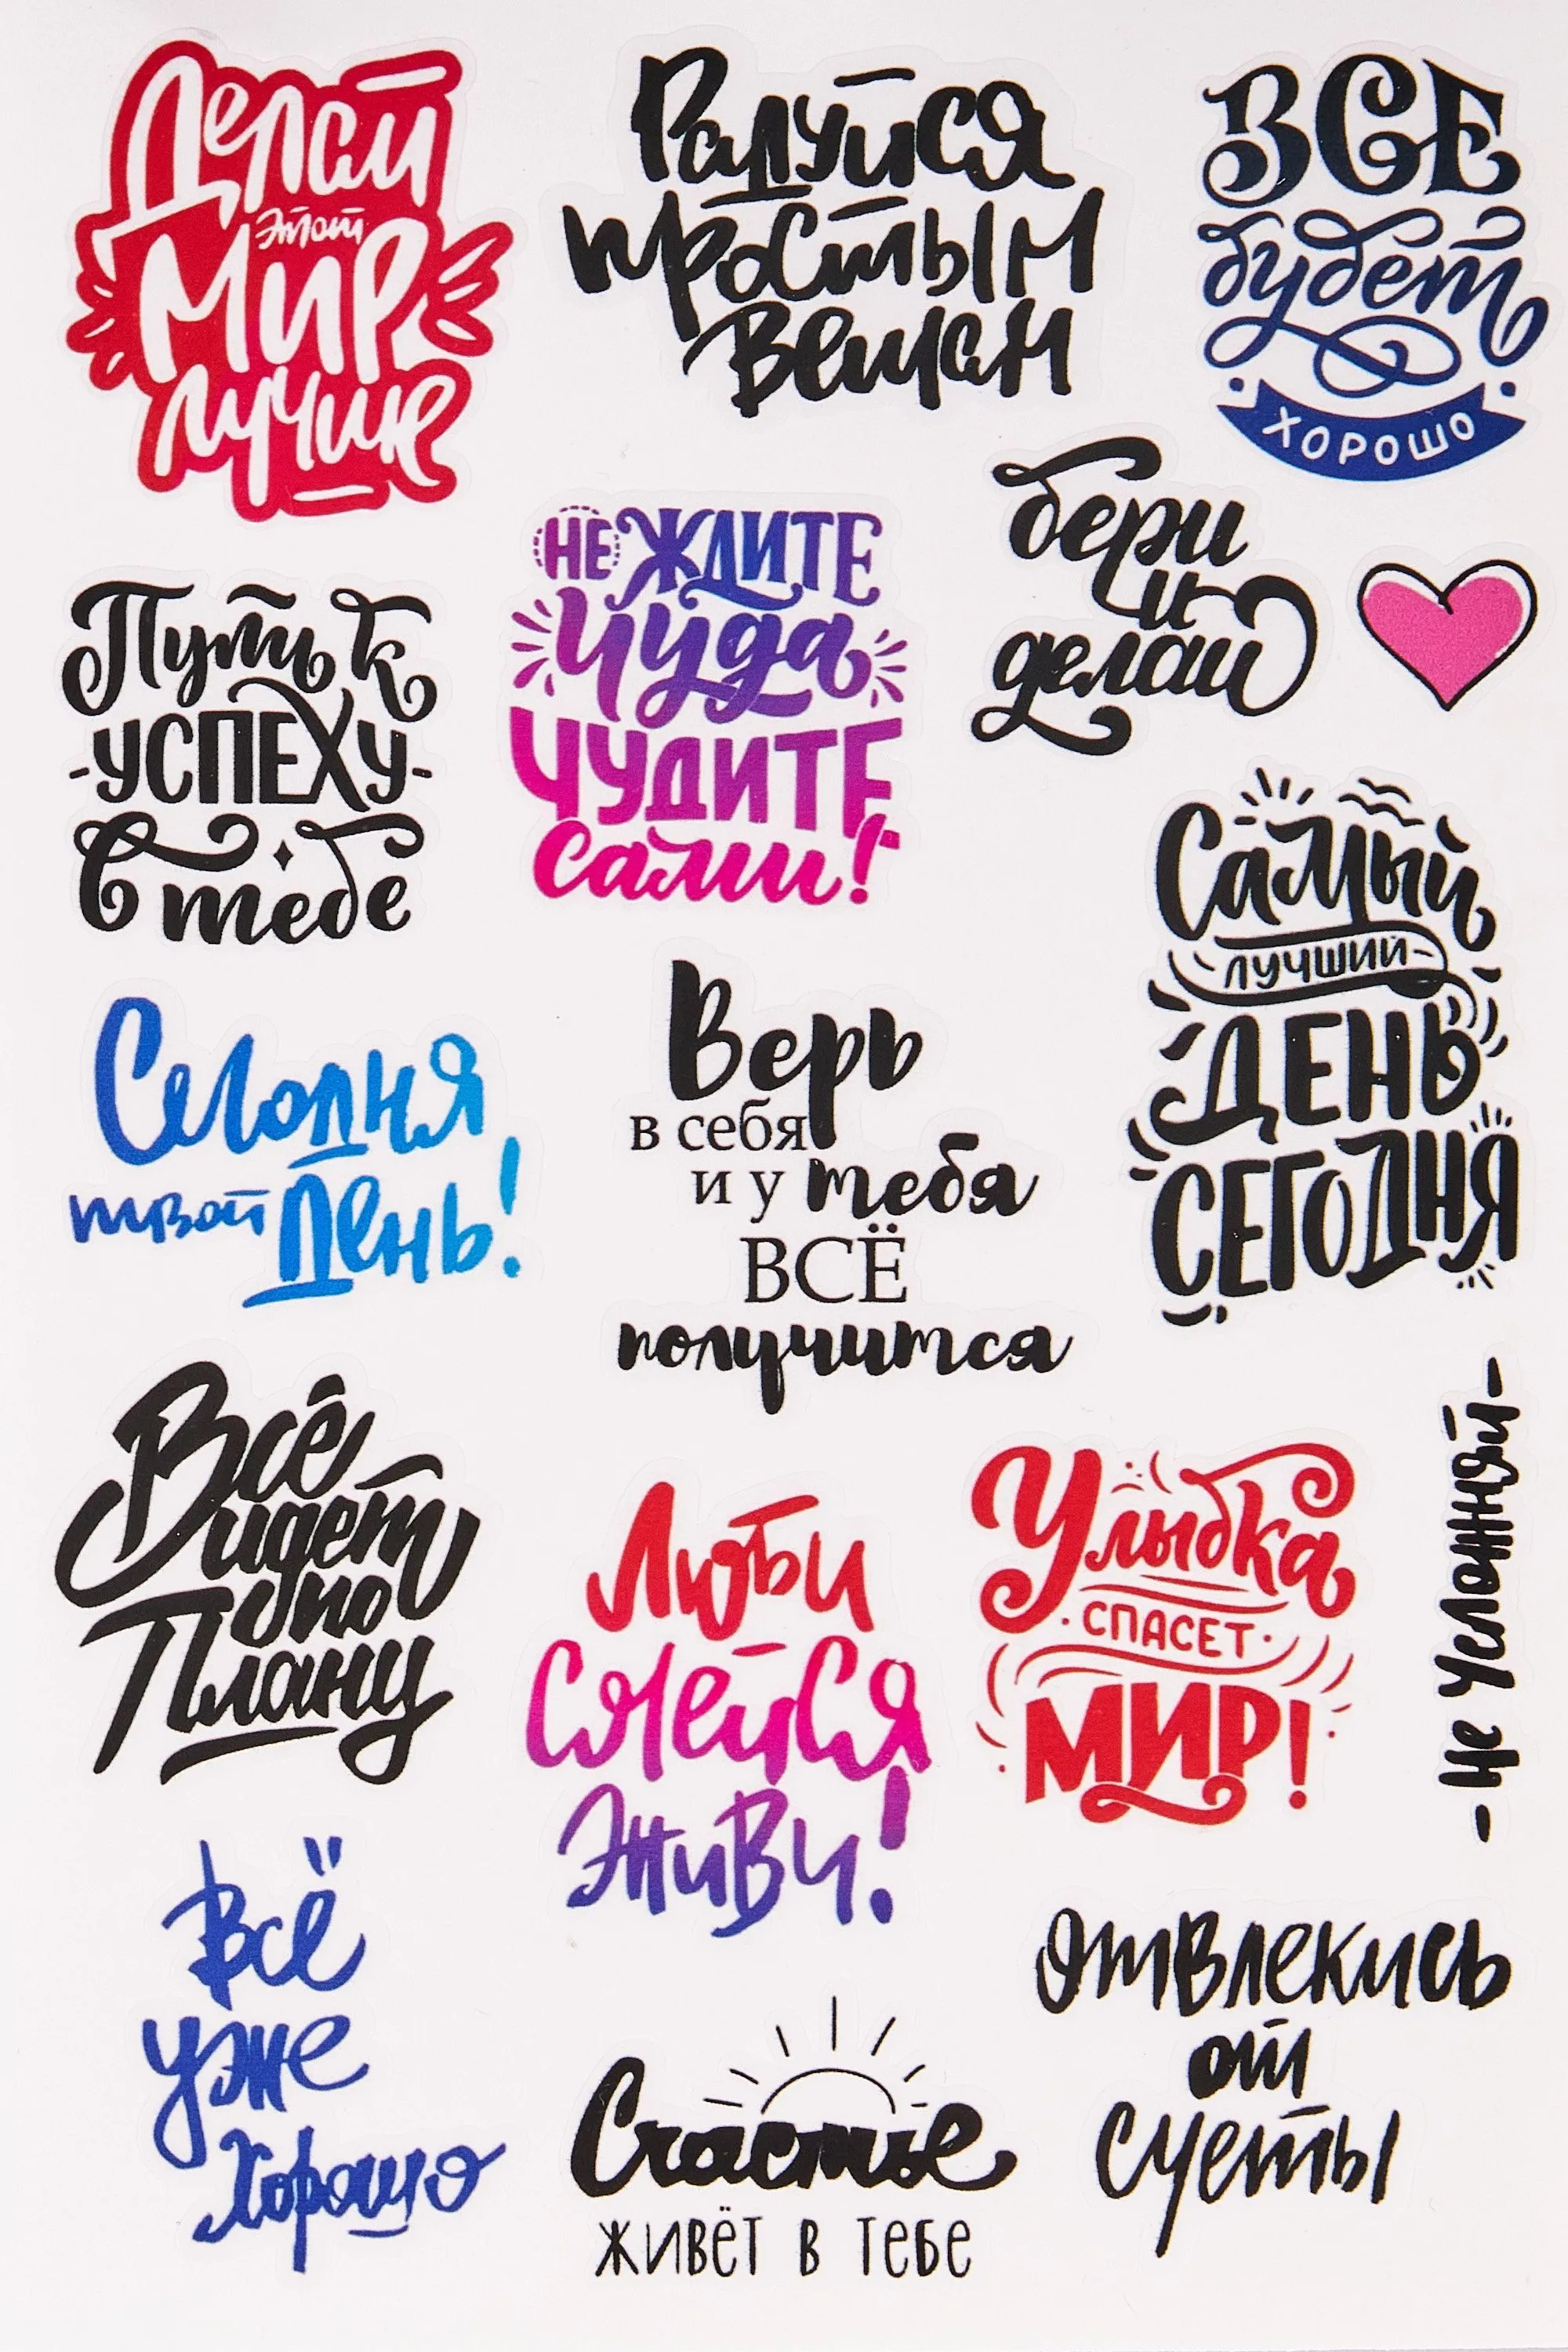 Делай
этот
Мир
лучше
Радуйся
простым
вещам
ВСЕ
будет
ХОРОШО
бери
и
делай
НЕ ЖДИТЕ
Чуда
ЧУДИТЕ
сами!
Путь к
-УСПЕХУ-
в тебе
Самый
ЛУЧШИЙ
ДЕНЬ
СЕГОДНЯ
Сегодня
твой День!
Верь
в себя
и у тебя
ВСЁ
получится
Всё
идет
по
Плану
Люби
Смейся
Живи!
Улыбка
СПАСЕТ
МИР!
- Не Усложняй -
Всё
уже
Хорошо
Счастье
живёт в тебе
Отвлекись
от
суеты